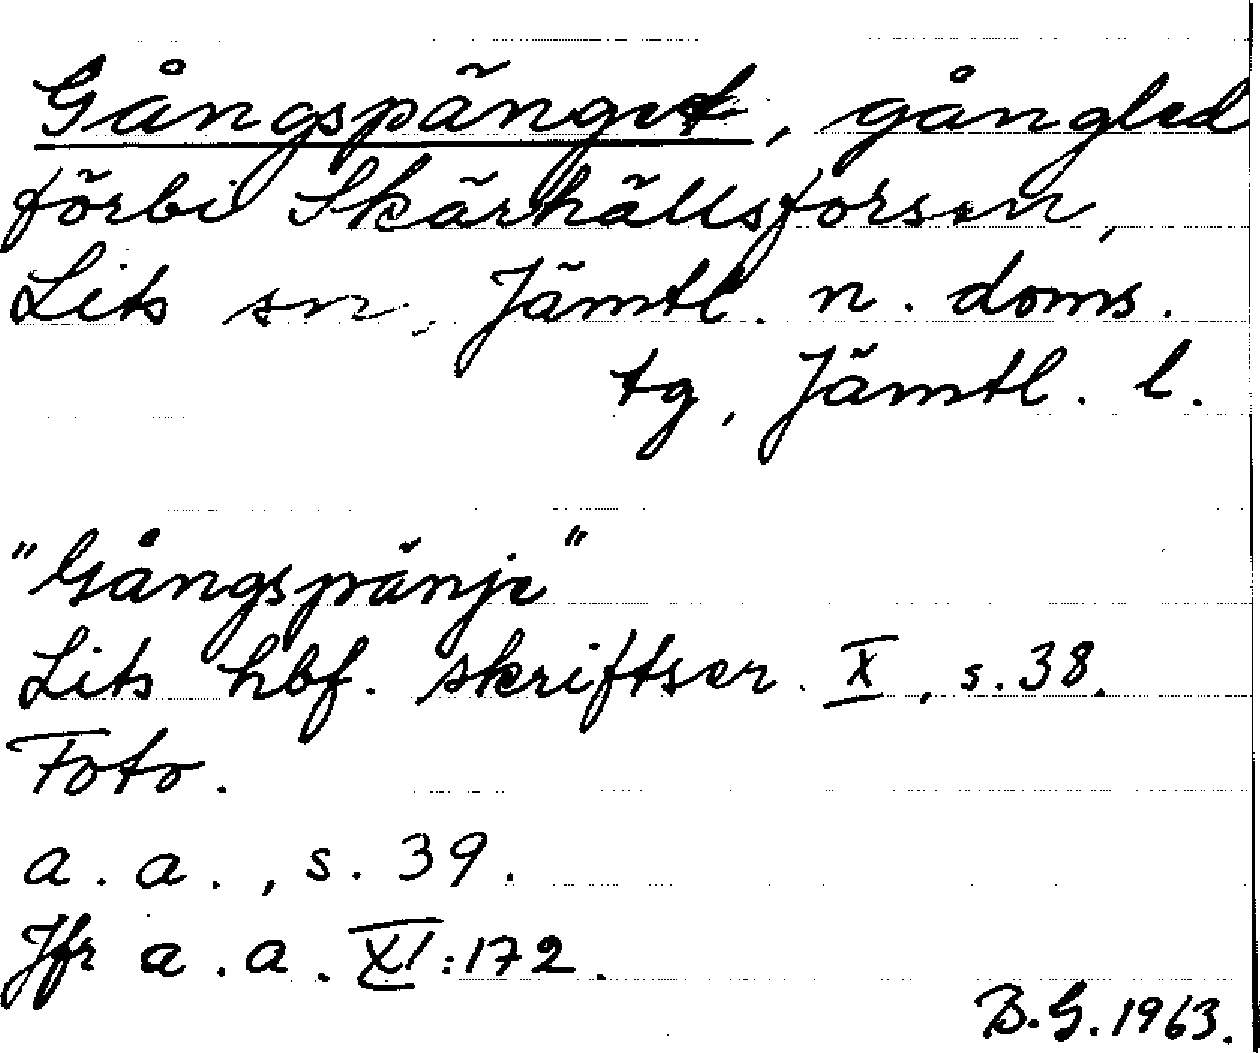 Gångspänget, gångled
förbi Skärhällsforsen,
Lits sn, Jämtl. n. doms.
tg, Jämtl. l.
"Gångspänje"
Lits hbf. skriftser. X, s. 38.
Foto.
a. a., s. 39.
Jfr a. a. XI:172.
B.G. 1963.